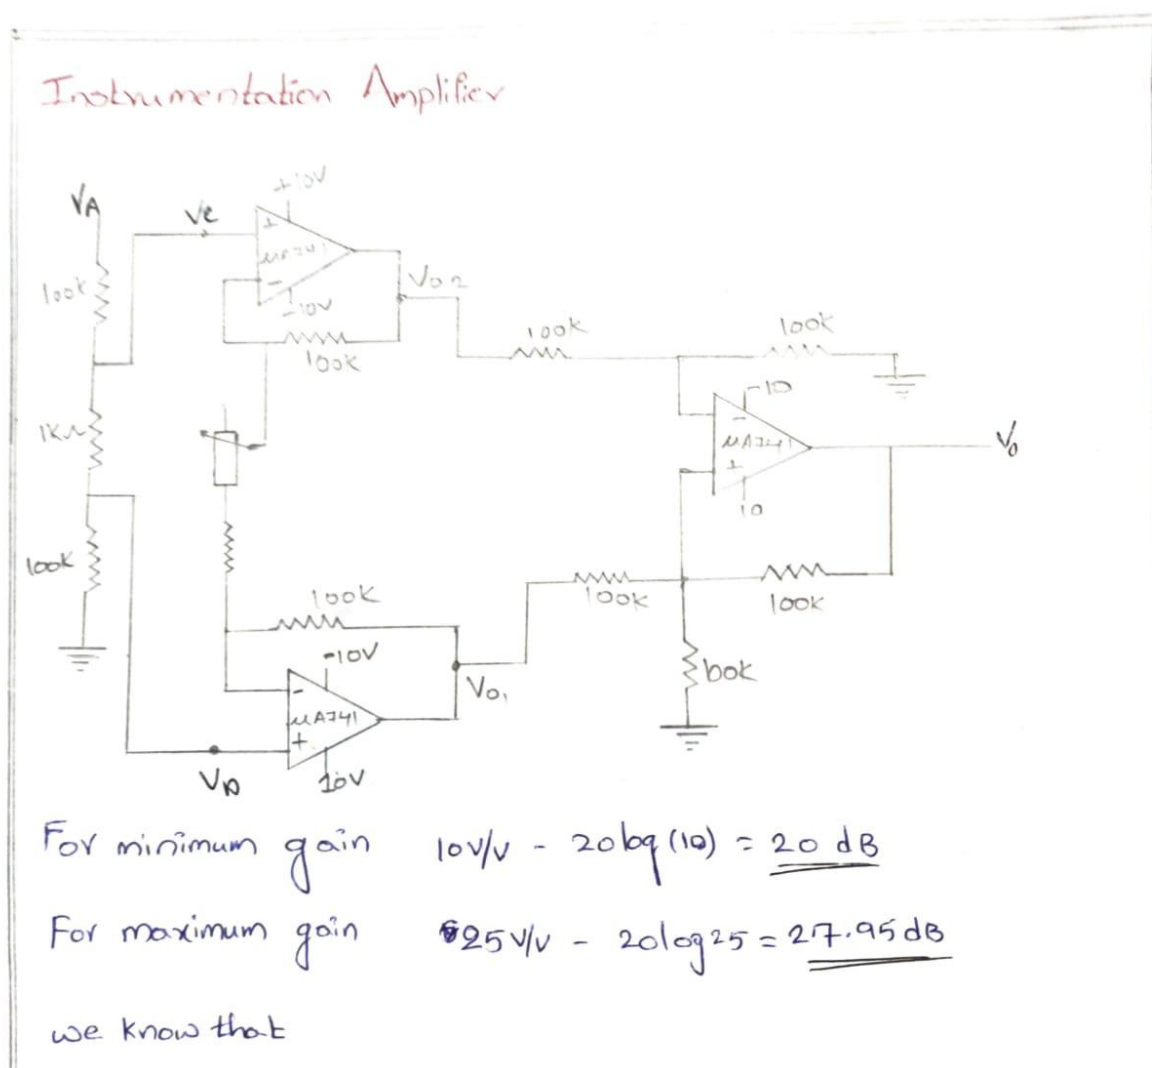 Instrumentation Amplifier
VA
Ve
+10V
+
μA741
-
-10V
100k
Vo2
100k
100k
100k
1K
100k
-10
-
μA741
+
10
Vo
100k
100k
100k
-10V
-
μA741
+
10V
Vo1
VD
For minimum gain 10V/V - 20log(10) = 20 dB
For maximum gain 25V/V - 20log25 = 27.95dB
we know that